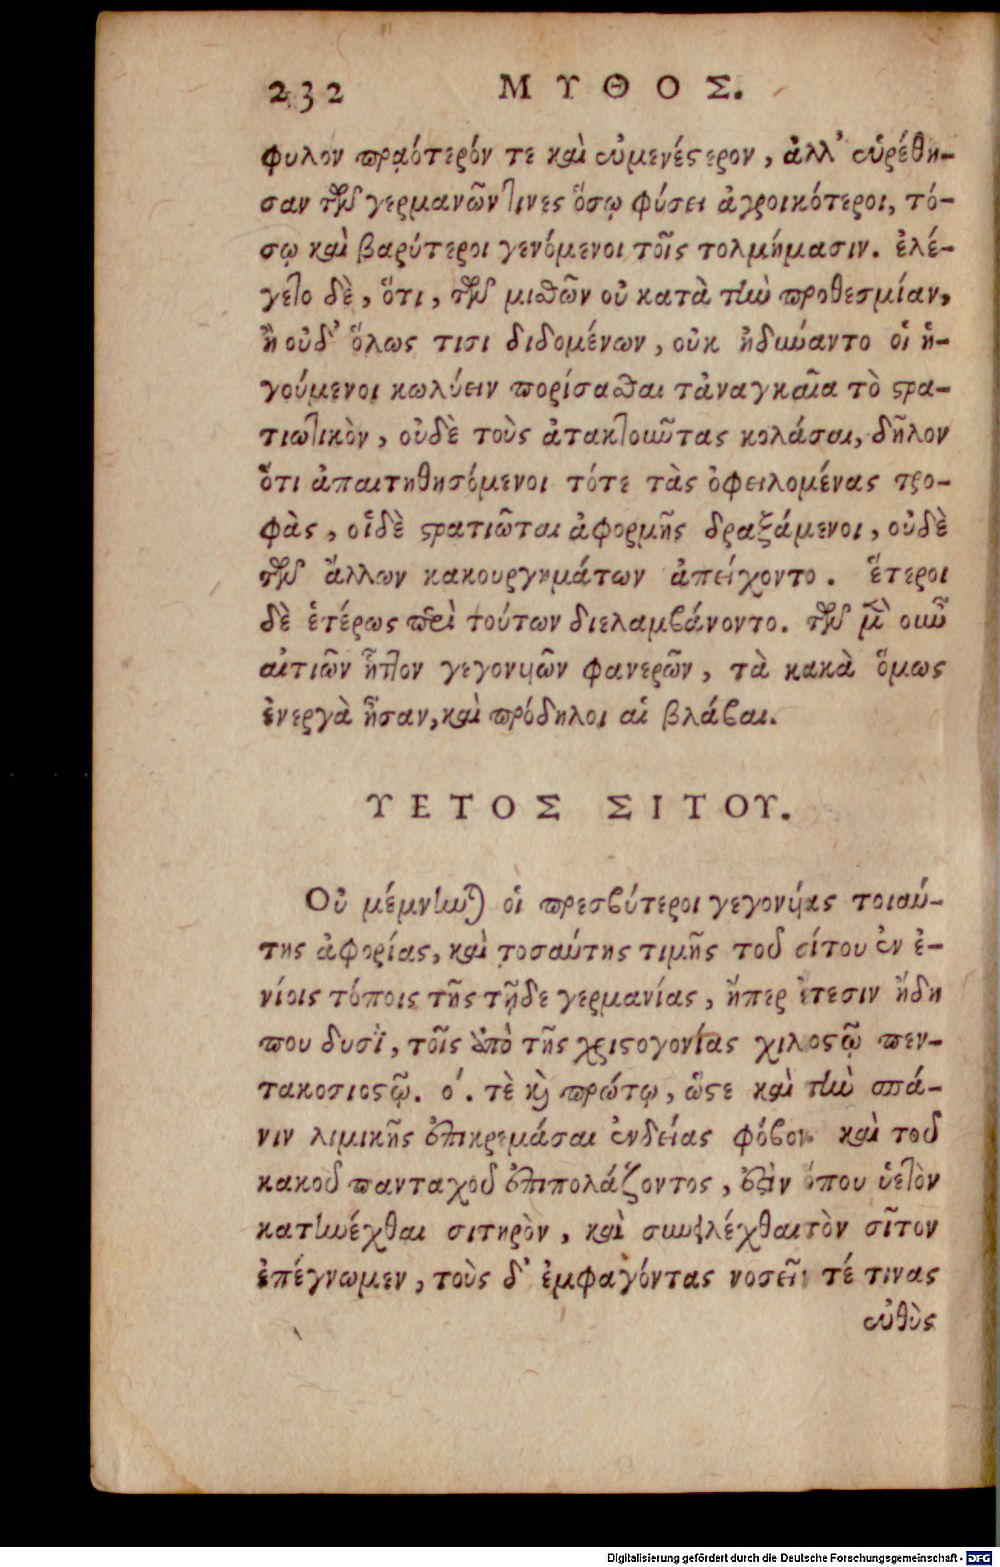 232 ΜΥΘΟΣ.
φυλον πραότερόν τε καὶ εὐμενέςερον, ἀλλ' εὑρέθη-
σαν τῶν γερμανῶν τινες ὅσῳ φύσει ἀγροικότεροι, τό-
σῳ καὶ βαρύτεροι γενόμενοι τοῖς τολμήμασιν. ἐλέ-
γετο δὲ, ὅτι, τῶν μισθῶν οὐ κατὰ τὴν προθεσμίαν,
ἢ οὐδ' ὅλως τισι διδομένων, οὐκ ἠδύναντο οἱ ἡ-
γούμενοι κωλύειν πορίσασθαι τἀναγκαῖα τὸ ςρα-
τιωτικὸν, οὐδὲ τοὺς ἀτακτοιῶτας κολάσαι, δῆλον
ὅτι ἀπαιτηθησόμενοι τότε τὰς ὀφειλομένας τρο-
φὰς, οἱδὲ ςρατιῶται ἀφορμῆς δραξάμενοι, οὐδὲ
τῶν ἄλλων κακουργημάτων ἀπείχοντο. ἕτεροι
δὲ ἑτέρως περὶ τούτων διελαμβάνοντο. τῶν μὲν οιῶ
αἰτιῶν ἧττον γεγονυιῶν φανερῶν, τὰ κακὰ ὅμως
ἐνεργὰ ἦσαν, καὶ πρόδηλοι αἱ βλάβαι.
ΥΕΤΟΣ ΣΙΤΟΥ.
Οὐ μέμνηνται οἱ πρεσβύτεροι γεγονυίας τοιαύ-
της ἀφορίας, καὶ τοσαύτης τιμῆς τοῦ σίτου ἐν ἐ-
νίοις τόποις τῆς τῇδε γερμανίας, ἥπερ ἔτεσιν ἤδη
που δυσῒ, τοῖς ἀπὸ τῆς χριςογονίας χιλιοςῷ πεν-
τακοσιοςῷ. ό. τὲ καὶ πρώτῳ, ὥςε καὶ τὴν σπά-
νιν λιμικῆς ἐπικρεμάσαι ἐνδείας φόβον. καὶ τοῦ
κακοῦ πανταχοῦ ἐπιπολάζοντος, ἐςὶν ὅπου ὑετὸν
κατηνέχθαι σιτηρὸν, καὶ συνειλέχθαι τὸν σῖτον
ἐπέγνωμεν, τοὺς δ' ἐμφαγόντας νοσεῖν τέ τινας
εὐθὺς
Digitalisierung gefördert durch die Deutsche Forschungsgemeinschaft - DFG